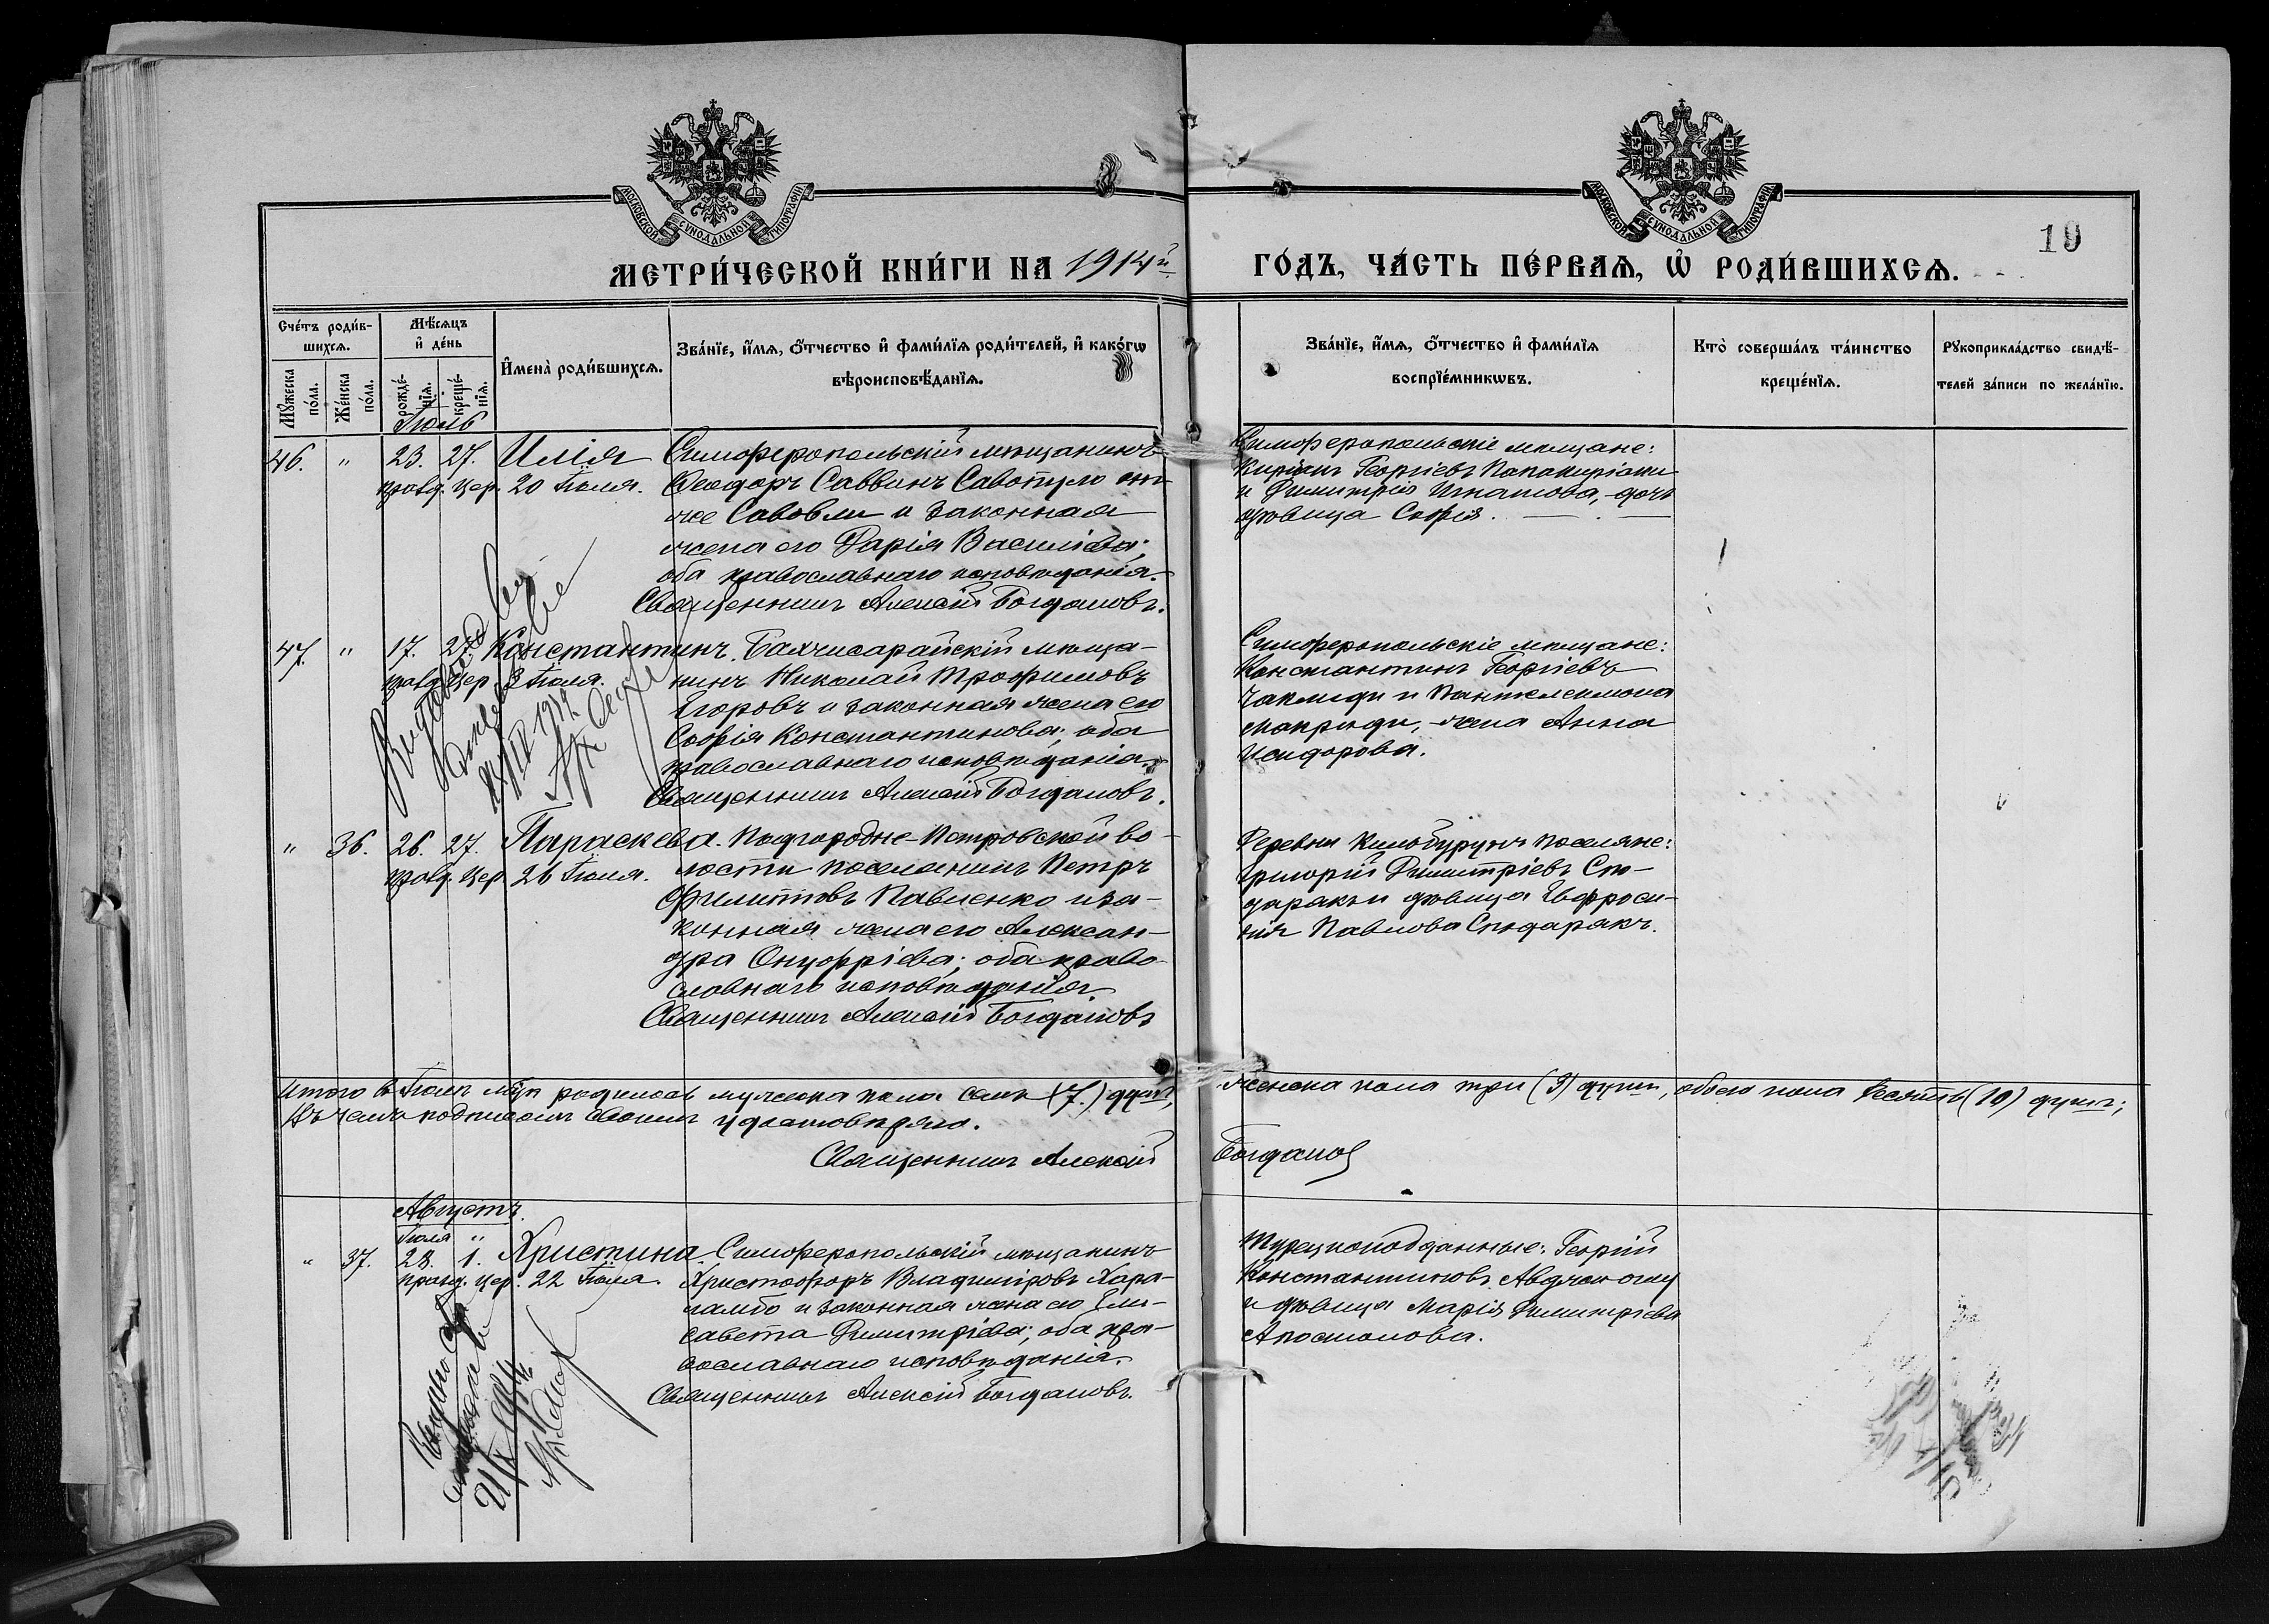 МОСКОВСКОЙ СѴНОДАЛЬНОЙ ТИПОГРАФІИ
МОСКОВСКОЙ СѴНОДАЛЬНОЙ ТИПОГРАФІИ
19
МЕТРИ́ЧЕСКОЙ КНИ́ГИ НА 1914й
ГО́ДЪ, ЧА́СТЬ ПЕ́РВАѦ, Ѡ҆ РОДИ́ВШИХСѦ.
Сче́тъ роди́в-
шихсѧ.
Мꙋ́жеска по́ла.
Же́нска по́ла.
Мѣ́сѧцъ
и҆ де́нь
рожде́-
нїѧ.
креще́-
нїѧ.
И҆мена̀ роди́вшихсѧ.
Зва́нїе, и҆́мѧ, ѻ҆́тчество и҆ фами́лїѧ роди́телей, и҆ како́гѡ
вѣроисповѣ́данїѧ.
Зва́нїе, и҆́мѧ, ѻ҆́тчество и҆ фами́лїѧ
воспрїе́мникѡвъ.
Кто̀ соверша́лъ та́инство
креще́нїѧ.
Рꙋкоприкла́дство свидѣ́-
телей за́писи по жела́нїю.
Іюль
46. " 23. 27. Илія Симферопольскій мѣщанинъ
правд. цер. 20 Іюля. Ѳеодоръ Саввинъ Савопуло онъ
же Савовли и законная
жена его Дарія Василіева;
оба православнаго исповѣданія.
Священникъ Алексій Богдановъ.
Симферопольскіе мѣщане:
Георгіевъ
и Димитрія Игнатова, - дочь
дѣвица Софія.
47. " 17. 27. Константинъ. Бахчисарайскій мѣща-
правд. цер. 3 Іюля. нинъ Николай Трофимовъ
Егоровъ и законная жена его
Софія Константинова; оба
православнаго исповѣданія.
Священникъ Алексій Богдановъ.
Симферопольскіе мѣщане:
Константинъ Георгіевъ
Чакмиди и Пантелеимона
Макриди, - жена Анна
Исидорова.
" 36. 26. 27. Параскева. Подгородне-Петровской во-
правд. цер. 26 Іюля. лости поселянинъ Петръ
Филипповъ Павленко и за-
конная жена его Алексан-
дра Онуфріева; оба право-
славнаго исповѣданія.
Священникъ Алексій Богдановъ
Деревни Килобурунъ поселяне:
Григорій Димитріевъ Спо-
даракъ и дѣвица Евфроси-
нія Павлова Сподаракъ.
Итого въ Іюлѣ м-цѣ родилось мужеска пола семь (7.) душъ,
женска пола три (3) душъ, обоего пола десять (10) душъ;
въ чемъ подписомъ своимъ удостовѣряю.
Священникъ Алексій
Богданов
Августъ.
Іюля "
" 37. 23. 1. Христина. Симферопольскій мѣщанинъ
правд. цер. 22 Іюля. Христофоръ Владиміровъ Хара-
ламбо и законная жена его Ели-
савета Димитріева; оба пра-
вославнаго исповѣданія.
Священникъ Алексій Богдановъ.
Турецкоподданные: Георгій
Константиновъ
и дѣвица Марія Димитріева
Апостолова.